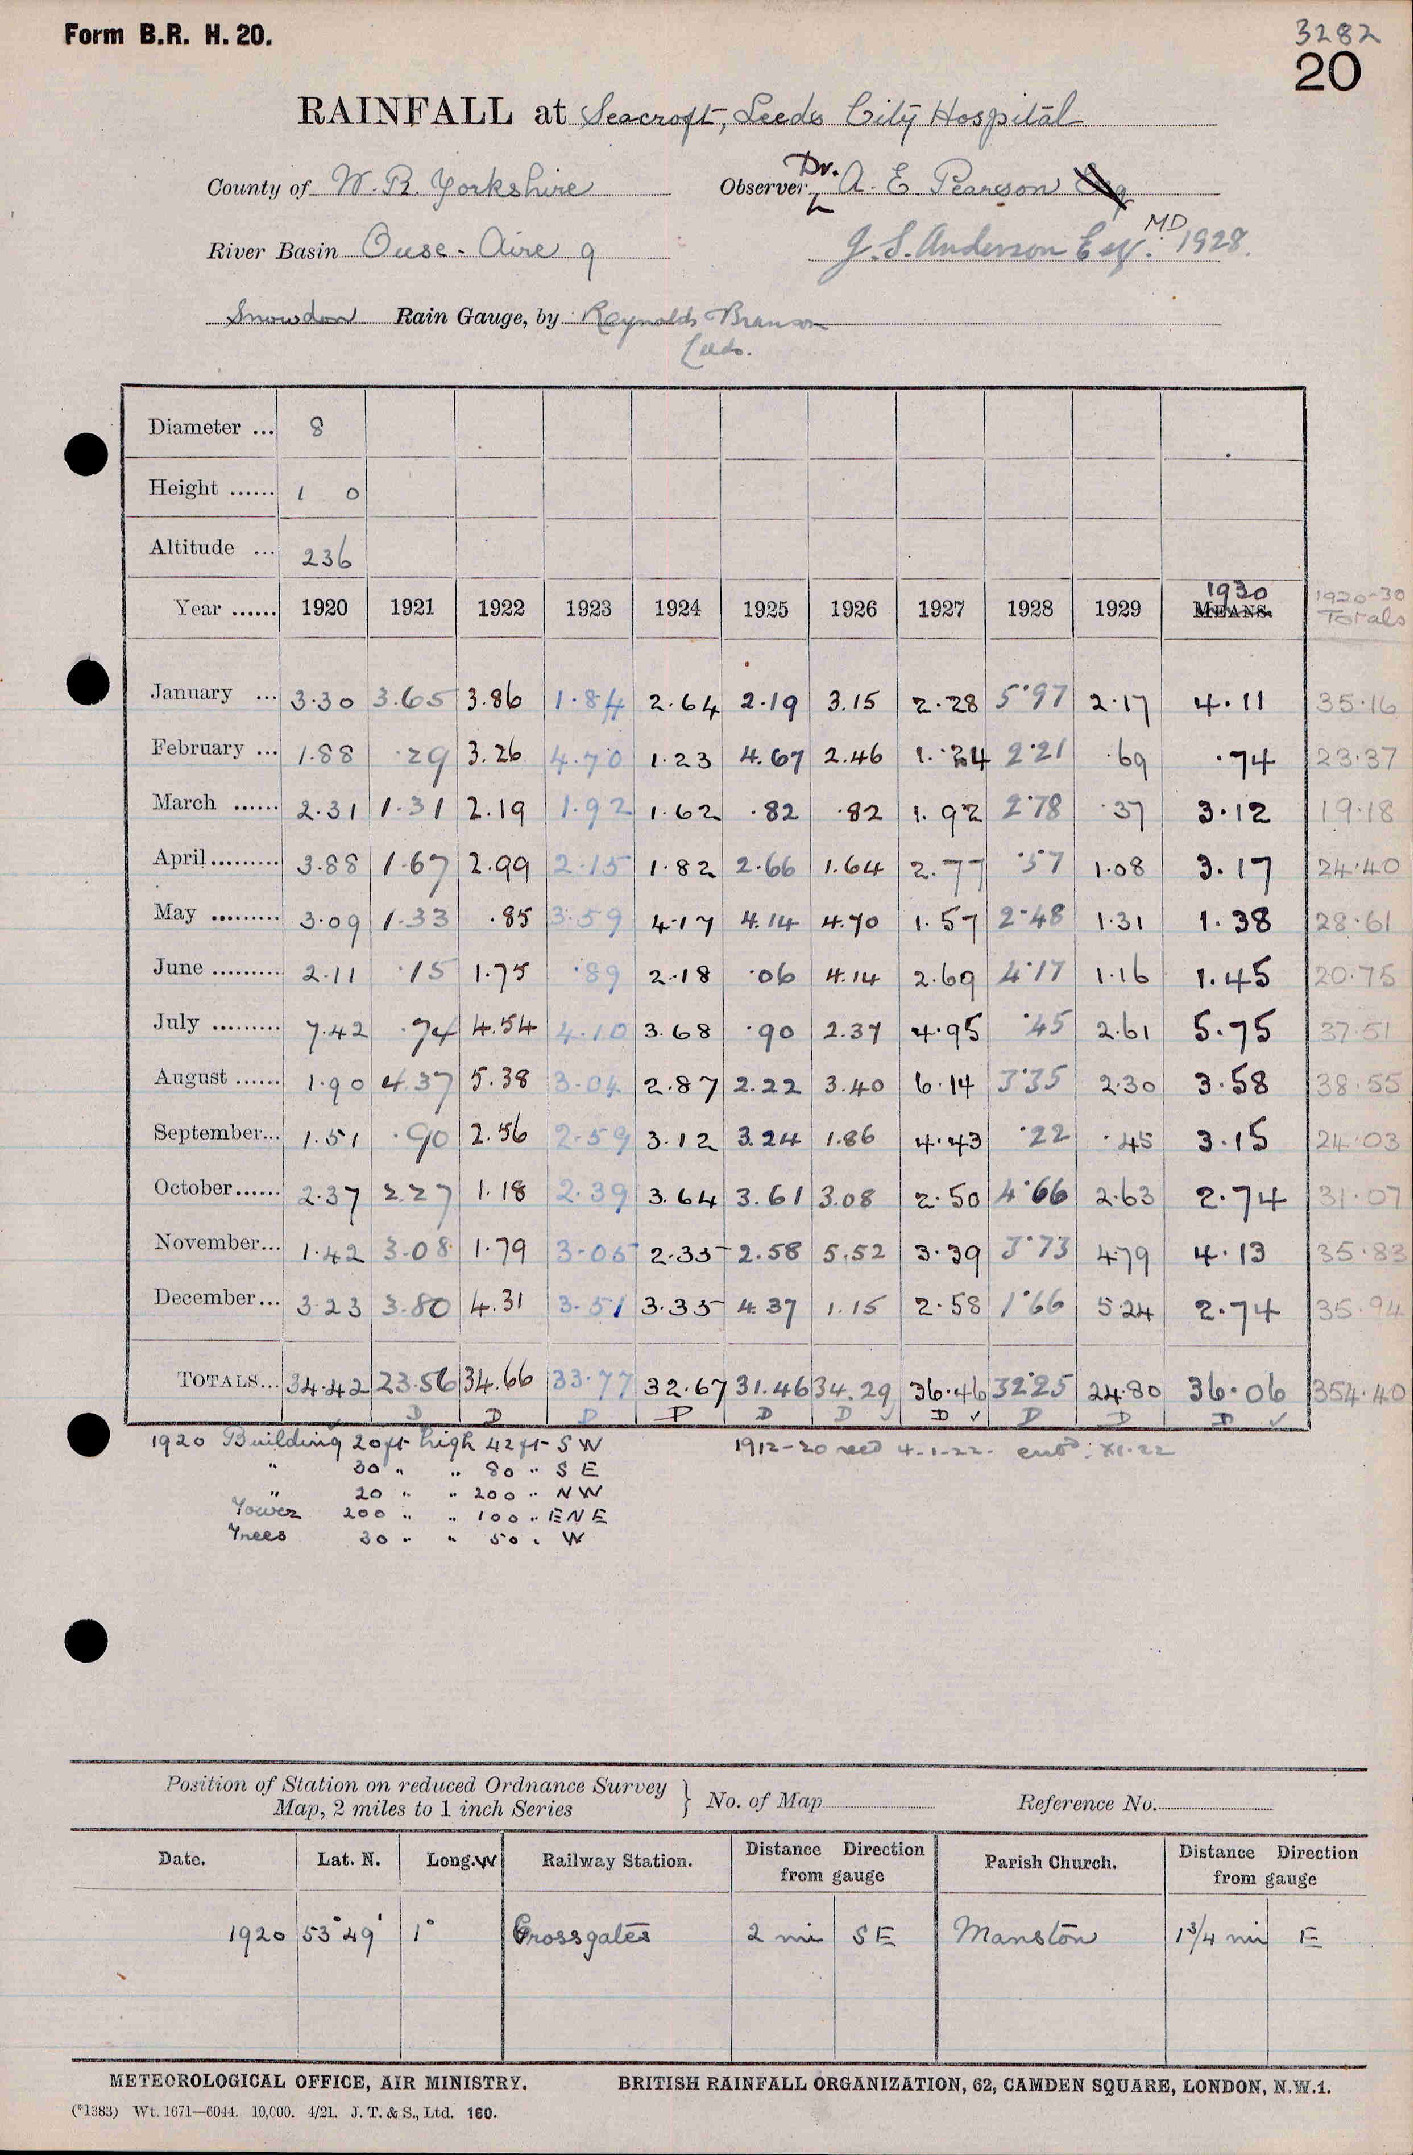 Form B.R. H. 20.
3282
20
RAINFALL at Seacroft, Leeds City Hospital
County of W. R. Yorkshire Observer Dr. A. E. Pearson Esq
River Basin Ouse - Aire 9 J. S. Anderson Esq. MD 1928.
Snowdon Rain Gauge, by Reynolds Branson
Leeds.
Diameter ... 8
Height ...... 1 0
Altitude ... 236
Year ...... 1920 1921 1922 1923 1924 1925 1926 1927 1928 1929 MEANS. 1930 1920-30 Totals
January ... 3.30 3.65 3.86 1.84 2.64 2.19 3.15 2.28 5.97 2.17 4.11 35.16
February ... 1.88 .29 3.26 4.70 1.23 4.67 2.46 1.24 2.21 .69 .74 23.37
March ...... 2.31 1.31 2.19 1.92 1.62 .82 .82 1.92 2.78 .37 3.12 19.18
April ......... 3.88 1.67 2.99 2.15 1.82 2.66 1.64 2.77 .57 1.08 3.17 24.40
May ......... 3.09 1.33 .85 3.59 4.17 4.14 4.70 1.57 2.48 1.31 1.38 28.61
June ......... 2.11 .15 1.75 .89 2.18 .06 4.14 2.69 4.17 1.16 1.45 20.75
July ......... 7.42 .74 4.54 4.10 3.68 .90 2.37 4.95 .45 2.61 5.75 37.51
August ...... 1.90 4.37 5.38 3.04 2.87 2.22 3.40 6.14 3.35 2.30 3.58 38.55
September... 1.51 .90 2.56 2.59 3.12 3.24 1.86 4.43 .22 .45 3.15 24.03
October...... 2.37 2.27 1.18 2.39 3.64 3.61 3.08 2.50 4.66 2.63 2.74 31.07
November... 1.42 3.08 1.79 3.05 2.35 2.58 5.52 3.39 3.73 4.79 4.13 35.83
December... 3.23 3.80 4.31 3.51 3.35 4.37 1.15 2.58 1.66 5.24 2.74 35.94
TOTALS... 34.42 23.56 34.66 33.77 32.67 31.46 34.29 36.46 32.25 24.80 36.06 354.40
D D D D D D D D D D
1920 Building 20 ft high 42 ft SW 1912-20 recd 4.1.22. entd. XI.22
" 30 " " 80 " SE
" 20 " " 200 " NW
Tower 200 " " 100 " ENE
Trees 30 " " 50 " W
Position of Station on reduced Ordnance Survey
Map, 2 miles to 1 inch Series } No. of Map Reference No.
Date. Lat. N. Long. W Railway Station. Distance Direction from gauge Parish Church. Distance Direction from gauge
1920 53° 49' 1° Crossgates 2 mi SE Manston 1 3/4 mi E
METEOROLOGICAL OFFICE, AIR MINISTRY. BRITISH RAINFALL ORGANIZATION, 62, CAMDEN SQUARE, LONDON, N.W.1.
(*1383) Wt. 1671—6044. 10,000. 4/21. J. T. & S., Ltd. 160.